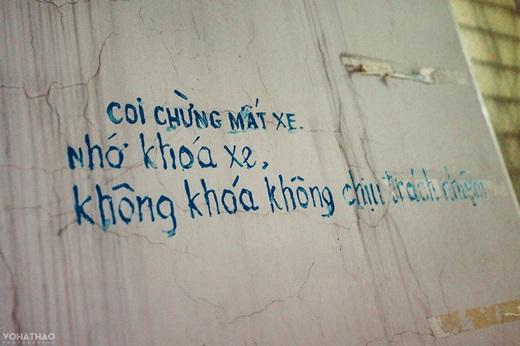 COI CHỪNG MẤT XE.
Nhớ khóa xe,
không khóa không chịu trách nhiệm
VOHATHAO